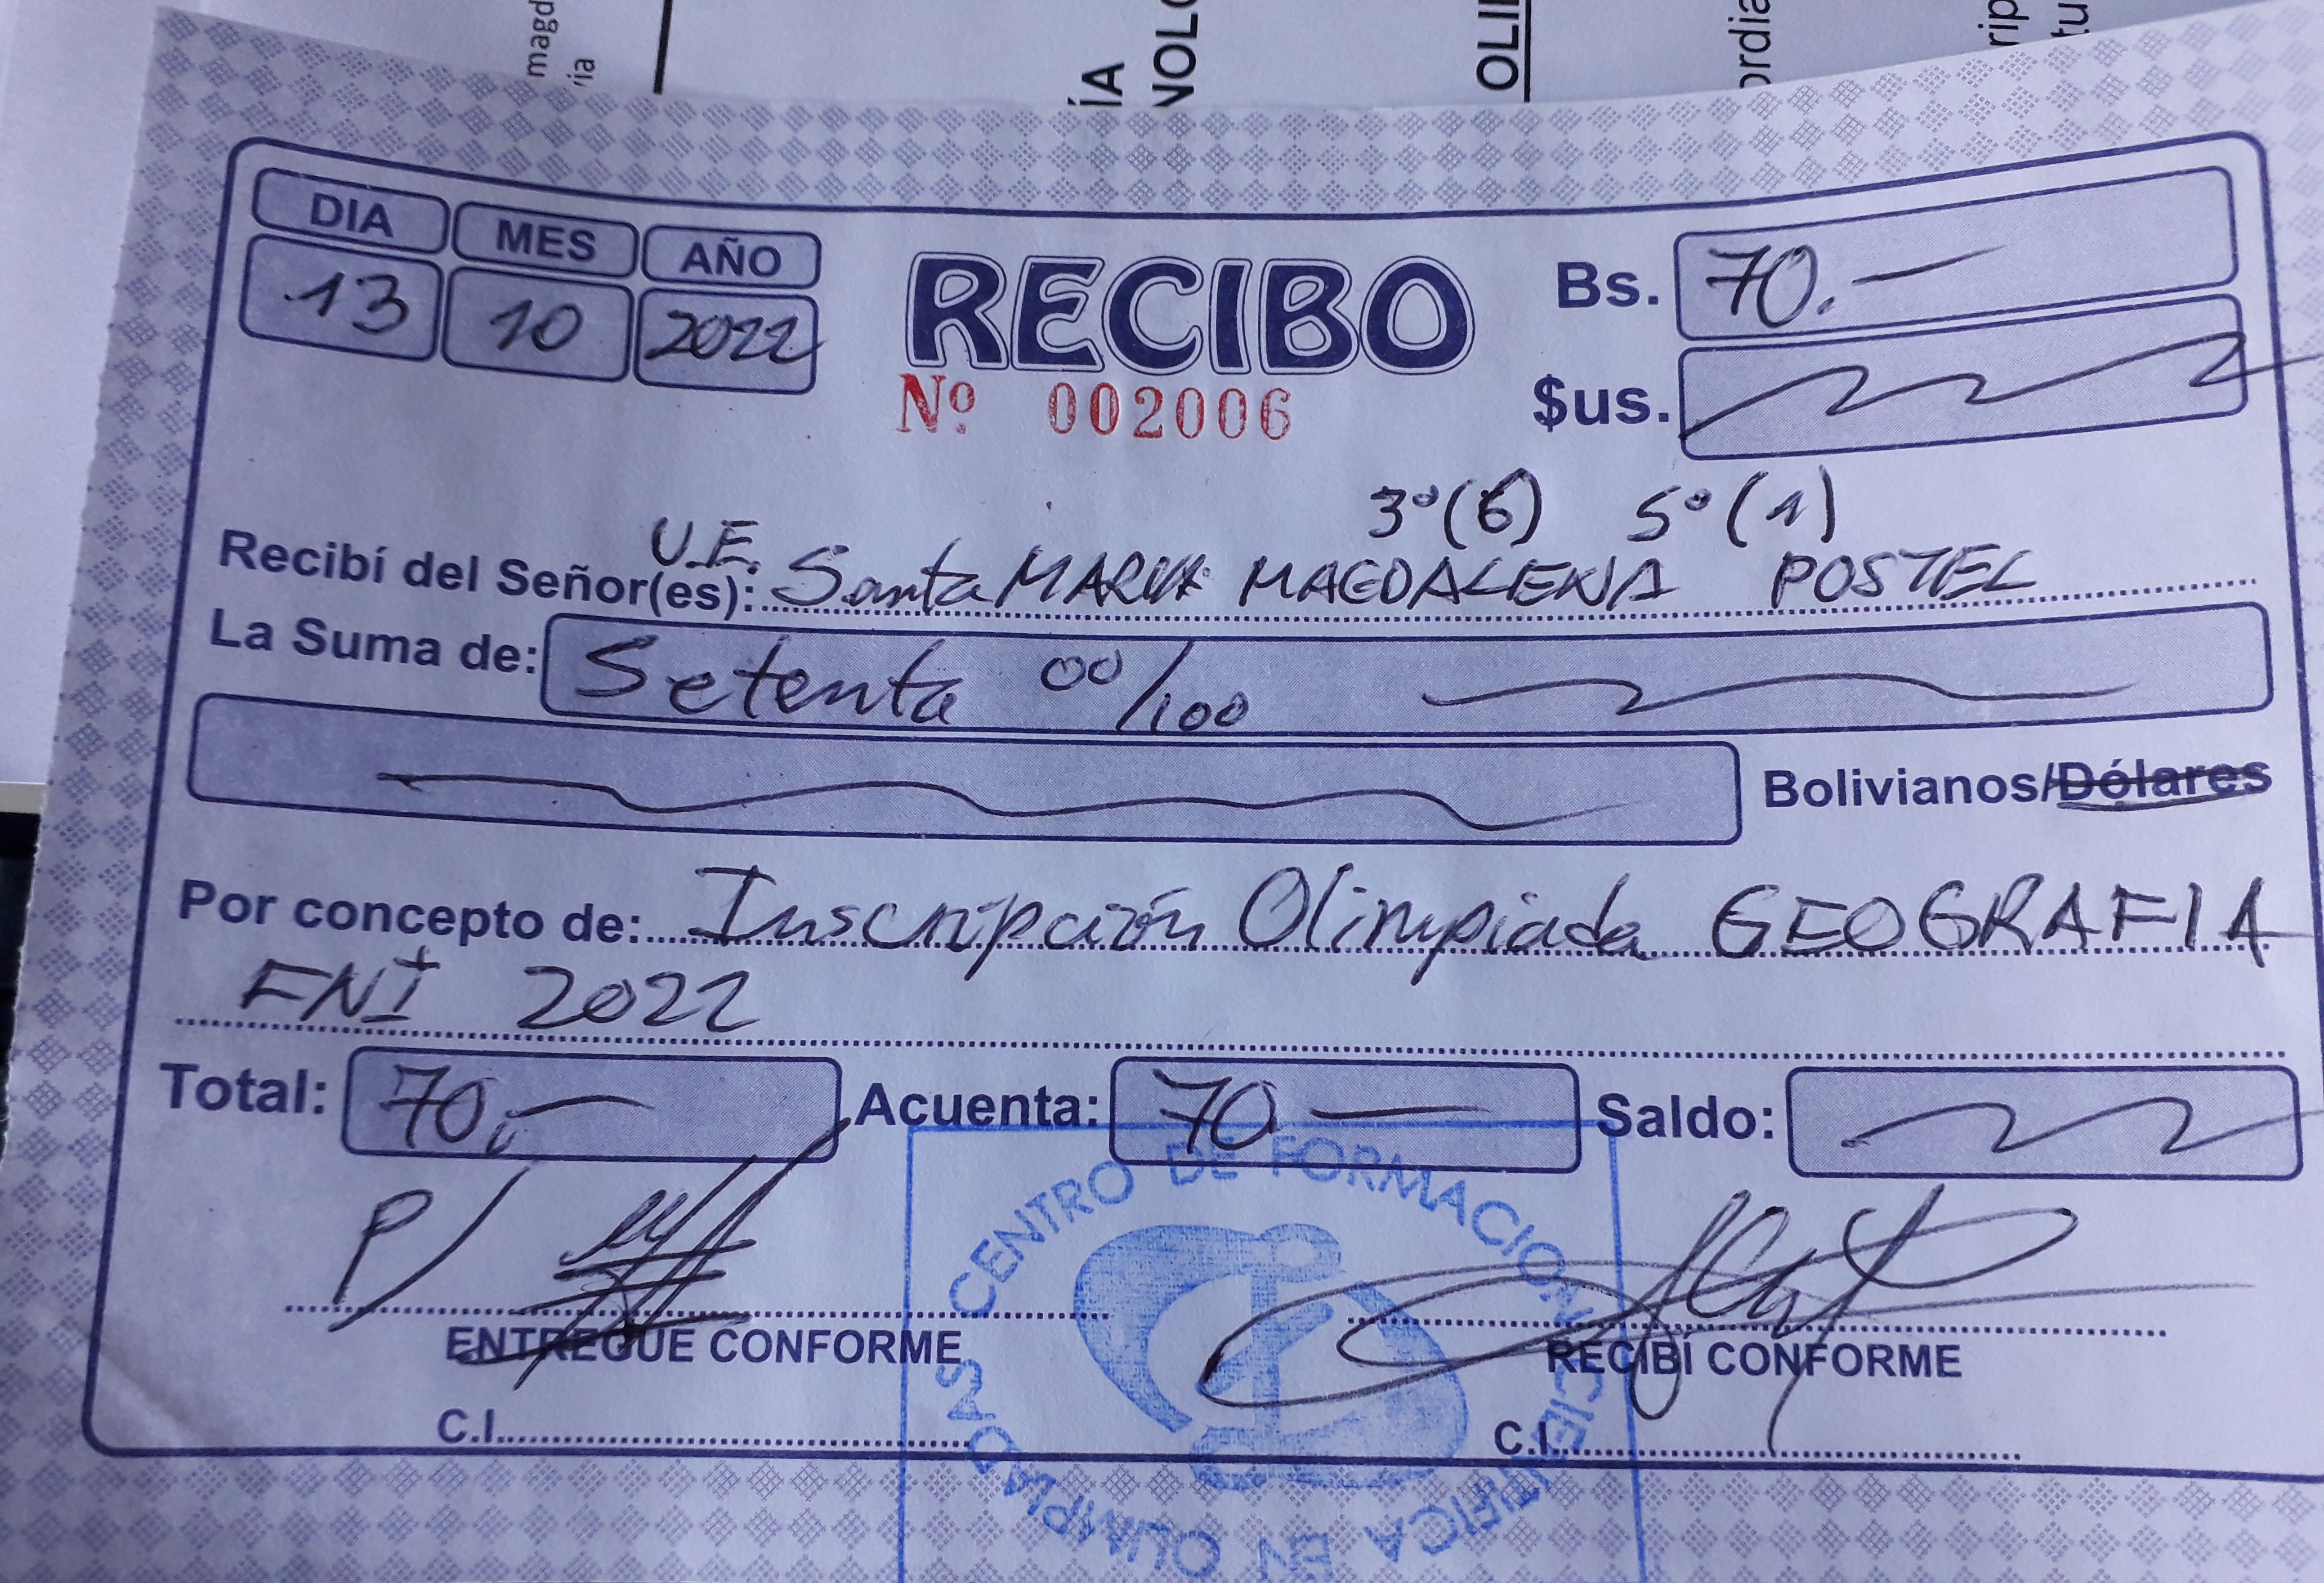 magd
ía
ÍA
NOLO
OLI
ordia
rip
tu
DIA MES AÑO
13 10 2022
RECIBO
Nº 002006
Bs. 70.-
$us.
3º(6) 5º(1)
Recibí del Señor(es): U.E. Santa MARIA MAGDALENA POSTEL
La Suma de: Setenta 00/100
Bolivianos/Dólares
Por concepto de: Inscripción Olimpiada GEOGRAFIA
2022
Total: 70.- Acuenta: 70.- Saldo:
P/
ENTREGUE CONFORME RECIBÍ CONFORME
C.I. C.I.
CENTRO DE FORMACION CIENTIFICA EN OLIMPIADAS